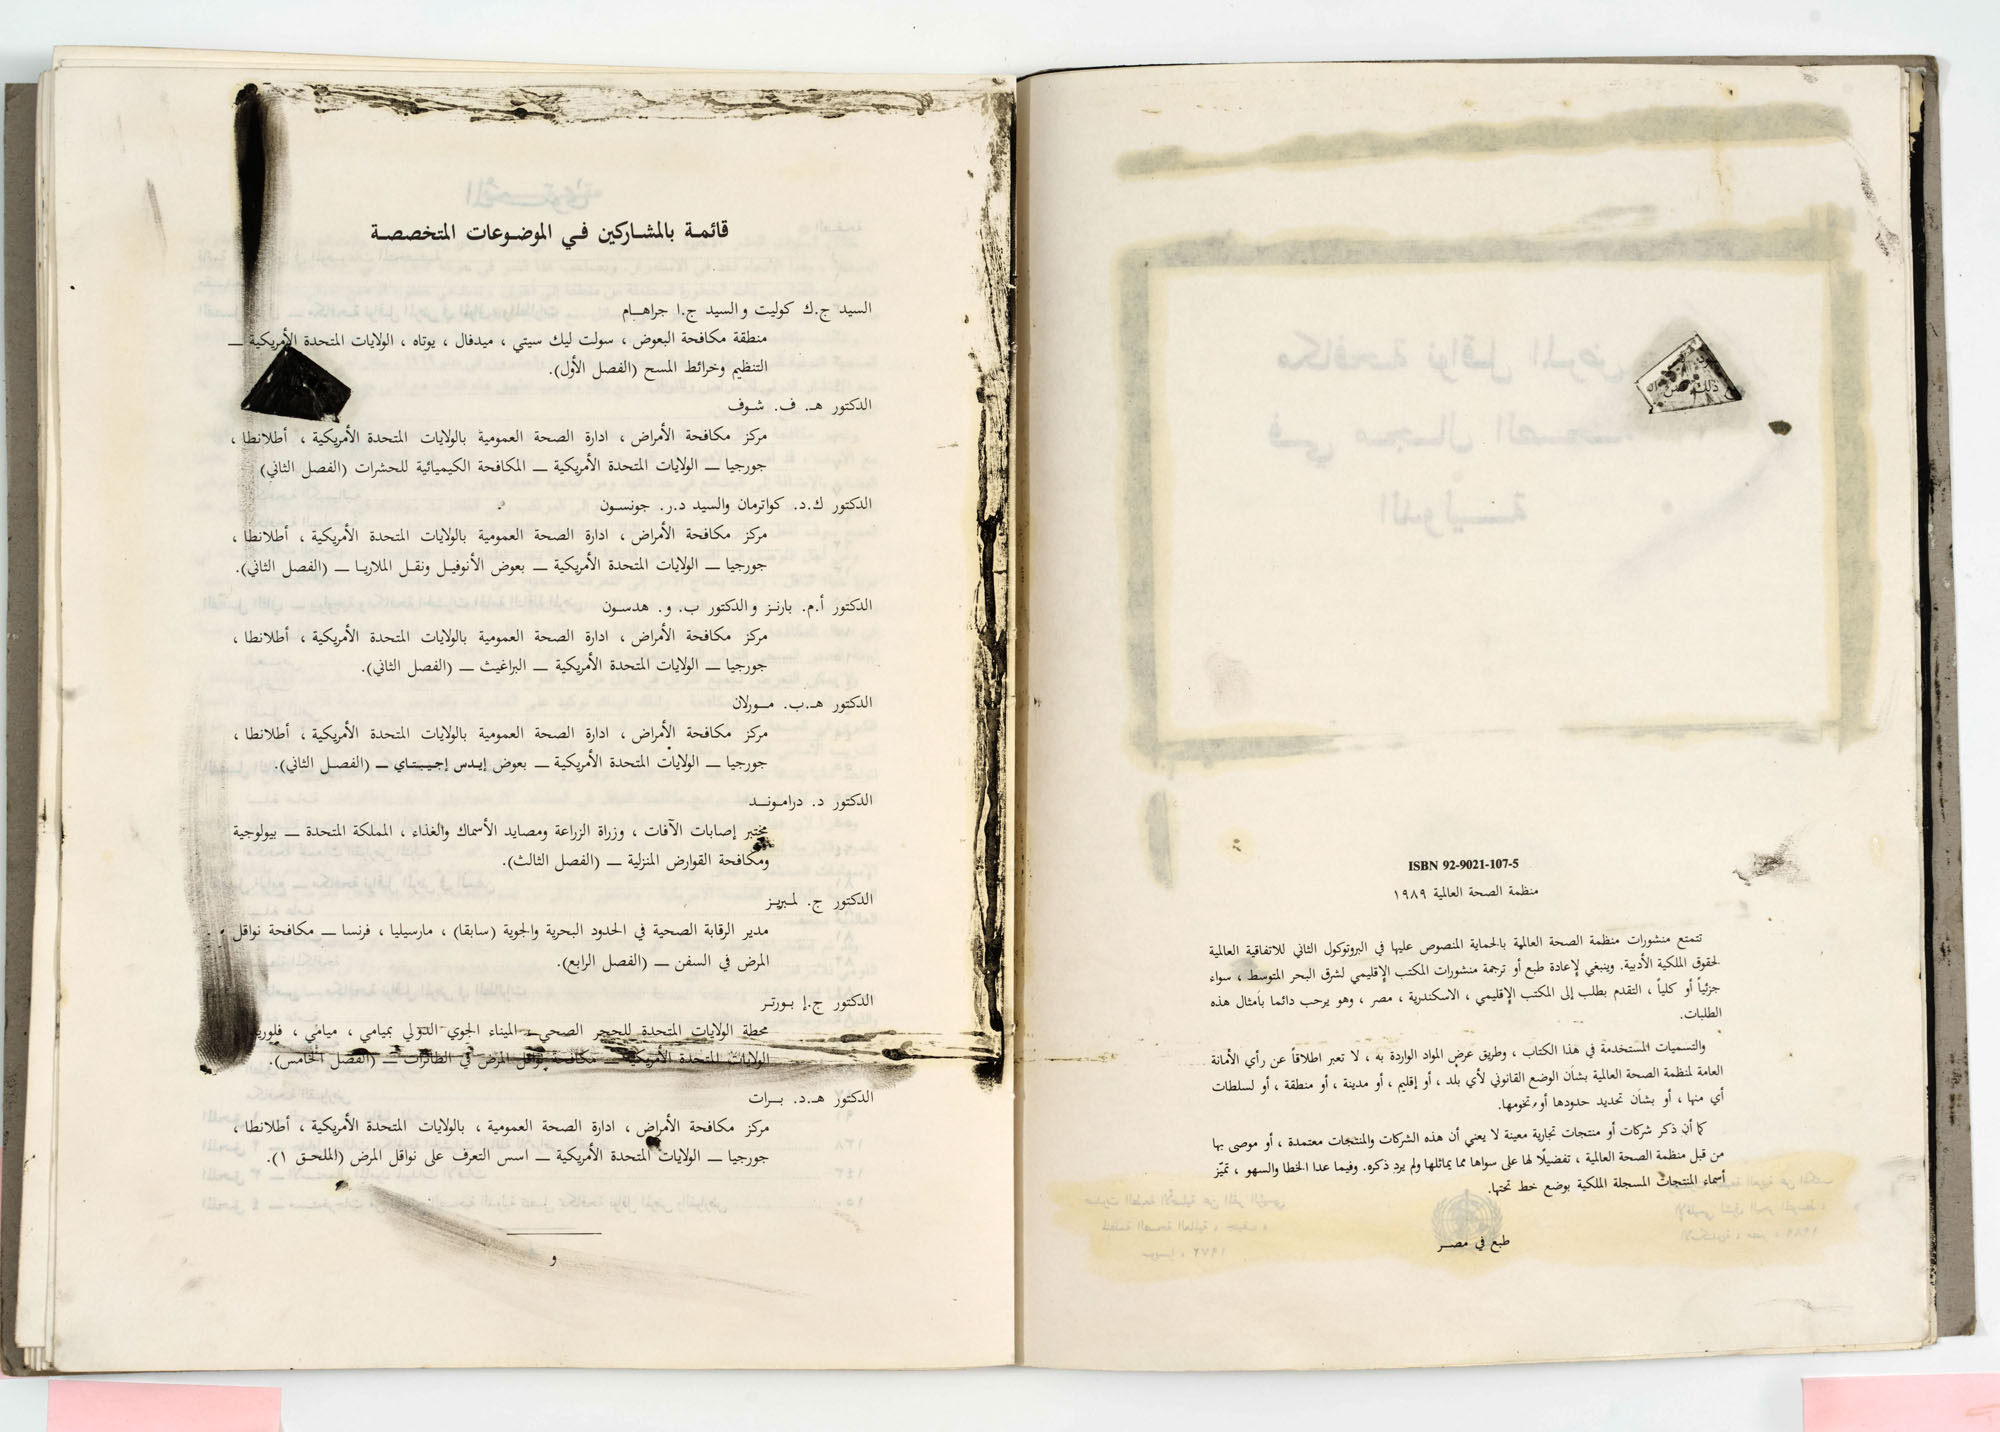 ISBN 92-9021-107-5
منظمة الصحة العالمية ١٩٨٩
تتمتع منشورات منظمة الصحة العالمية بالحماية المنصوص عليها في البروتوكول الثاني للاتفاقية العالمية
لحقوق الملكية الأدبية. وينبغي لإعادة طبع أو ترجمة منشورات المكتب الإقليمي لشرق البحر المتوسط ، سواء
جزئياً أو كلياً ، التقدم بطلب إلى المكتب الإقليمي ، الاسكندرية ، مصر ، وهو يرحب دائما بأمثال هذه
الطلبات.
والتسميات المستخدمة في هذا الكتاب ، وطريق عرض المواد الواردة به ، لا تعبر اطلاقاً عن رأي الأمانة
العامة لمنظمة الصحة العالمية بشأن الوضع القانوني لأي بلد ، أو إقليم ، أو مدينة ، أو منطقة ، أو لسلطات
أي منها ، أو بشأن تحديد حدودها أو تخومها.
كما أن ذكر شركات أو منتجات تجارية معينة لا يعني أن هذه الشركات والمنتجات معتمدة ، أو موصى بها
من قبل منظمة الصحة العالمية ، تفضيلًا لها على سواها مما يماثلها ولم يرد ذكره. وفيما عدا الخطا والسهو ، تميّز
أسماء المنتجات المسجلة الملكية بوضع خط تحتها.
طبع في مصر
قائمة بالمشاركين في الموضوعات المتخصصة
السيد ج.ك كوليت والسيد ج.ا جراهام
منطقة مكافحة البعوض ، سولت ليك سيتي ، ميدفال ، يوتاه ، الولايات المتحدة الأمريكية —
التنظيم وخرائط المسح (الفصل الأول).
الدكتور هـ. ف. شوف
مركز مكافحة الأمراض ، ادارة الصحة العمومية بالولايات المتحدة الأمريكية ، أطلانطا ،
جورجيا — الولايات المتحدة الأمريكية — المكافحة الكيميائية للحشرات (الفصل الثاني)
الدكتور ك.د. كواترمان والسيد د.ر. جونسون
مركز مكافحة الأمراض ، ادارة الصحة العمومية بالولايات المتحدة الأمريكية ، أطلانطا ،
جورجيا — الولايات المتحدة الأمريكية — بعوض الأنوفيل ونقل الملاريا — (الفصل الثاني).
الدكتور أ.م. بارنز والدكتور ب. و. هدسون
مركز مكافحة الأمراض ، ادارة الصحة العمومية بالولايات المتحدة الأمريكية ، أطلانطا ،
جورجيا — الولايات المتحدة الأمريكية — البراغيث — (الفصل الثاني).
الدكتور هـ.ب. مورلان
مركز مكافحة الأمراض ، ادارة الصحة العمومية بالولايات المتحدة الأمريكية ، أطلانطا ،
جورجيا — الولايات المتحدة الأمريكية — بعوض إيدس إجيبتاي — (الفصل الثاني).
الدكتور د. دراموند
مختبر إصابات الآفات ، وزراة الزراعة ومصايد الأسماك والغذاء ، المملكة المتحدة — بيولوجية
ومكافحة القوارض المنزلية — (الفصل الثالث).
الدكتور ج. لمبريز
مدير الرقابة الصحية في الحدود البحرية والجوية (سابقا) ، مارسيليا ، فرنسا — مكافحة نواقل
المرض في السفن — (الفصل الرابع).
الدكتور ج.إ بورتر
محطة الولايات المتحدة للحجر الصحي ، الميناء الجوي الدولي بميامي ، ميامي ،
الولايات المتحدة الأمريكية — مكافحة نواقل المرض في الطائرات — (الفصل الخامس).
الدكتور هـ.د. برات
مركز مكافحة الأمراض ، ادارة الصحة العمومية ، بالولايات المتحدة الأمريكية ، أطلانطا ،
جورجيا — الولايات المتحدة الأمريكية — اسس التعرف على نواقل المرض (الملحق ١).
و